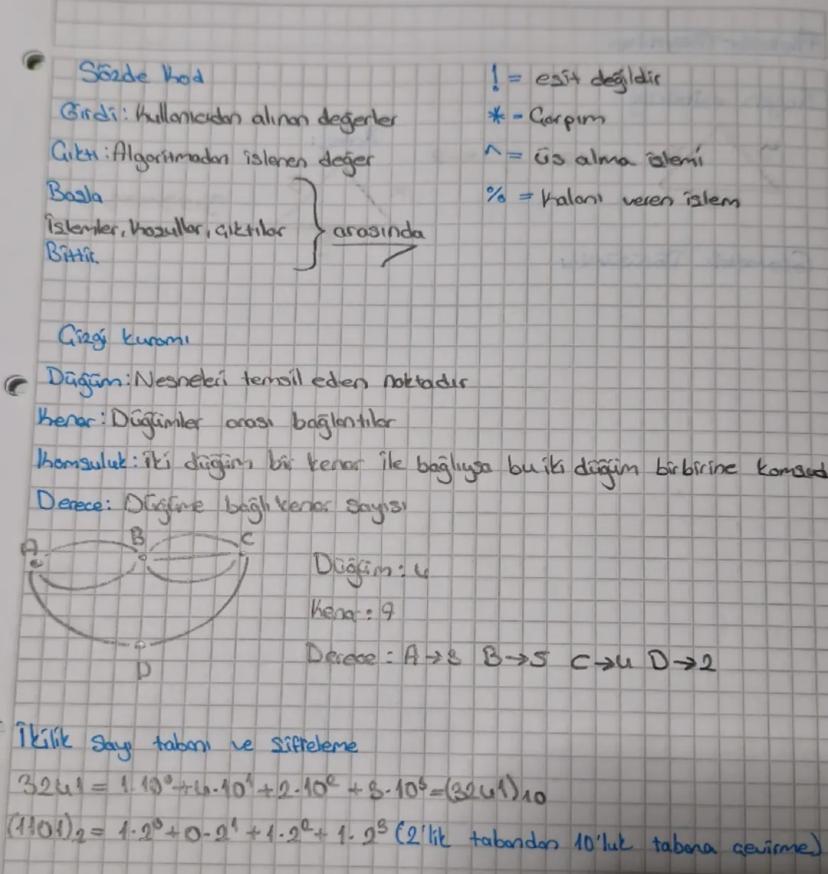 Sözde kod
Girdi: Kullanıcıdan alınan değerler
Çıktı: Algoritmadan istenen değer
Başla
İşlemler, koşullar, çıktılar } arasında
Bitir.
! = eşit değildir
* = Çarpım
^ = üs alma işlemi
% = kalanı veren işlem
Çizgi kuramı
Düğüm: Nesneleri temsil eden noktadır
Kenar: Düğümler arası bağlantılar
Komşuluk: iki düğüm bir kenar ile bağlıysa bu iki düğüm birbirine komşud
Derece: Düğüme bağlı kenar sayısı
A B C
Düğüm: 4
Kena: 9
Derece: A→3 B→5 C→4 D→2
D
İkilik sayı tabanı ve şifreleme
3241 = 1.10⁰+4.10¹+2.10²+3.10³=(3241)10
(1101)2 = 1.2⁰+0.2¹+1.2²+1.2³ (2'lik tabandan 10'luk tabana çevirme)